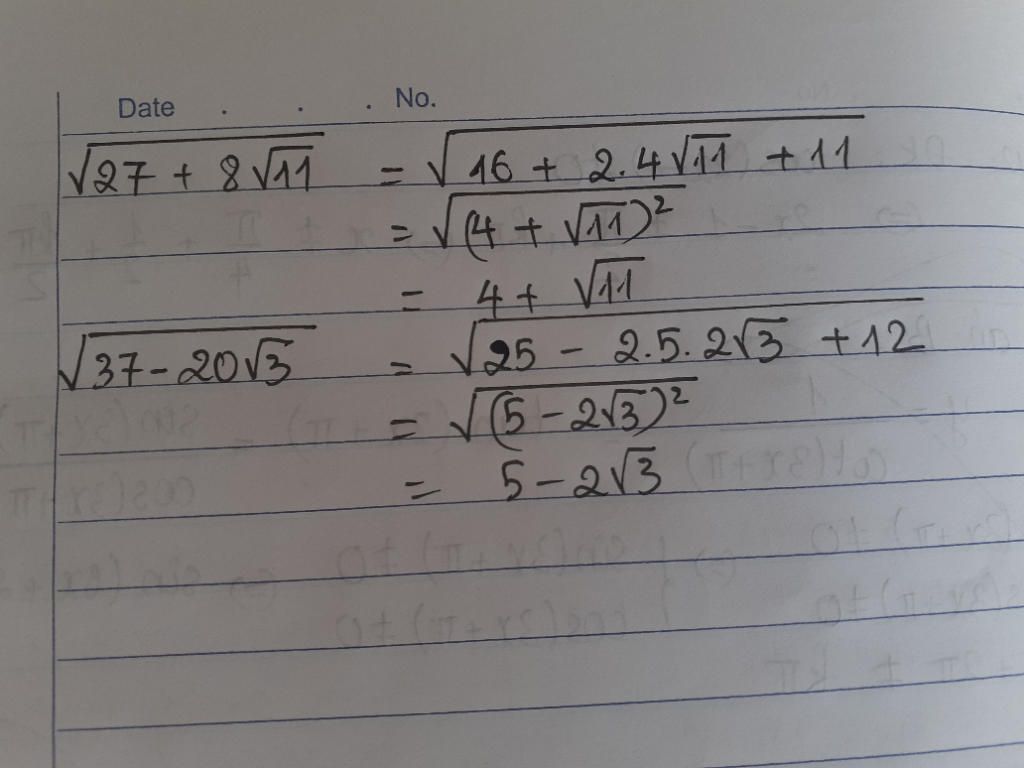 Date . . . No.
√(27 + 8√11) = √(16 + 2.4√11 + 11)
= √((4 + √11)²)
= 4 + √11
√(37 - 20√3) = √(25 - 2.5.2√3 + 12)
= √((5 - 2√3)²)
= 5 - 2√3